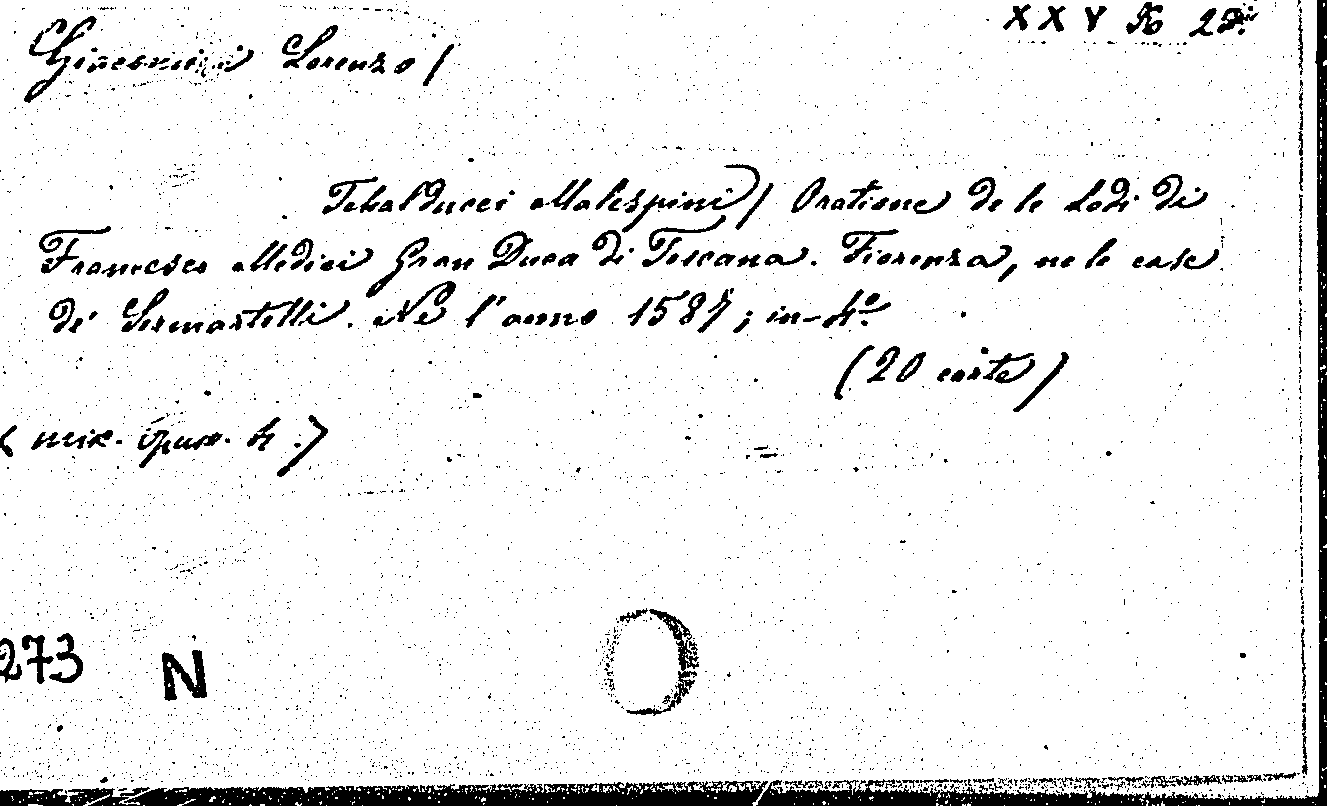 XXV K 22.
Giacomini Lorenzo /
Tebalducci Malespini) / Oratione de le Lodi di
Francesco Medici Gran Duca di Toscana. Fiorenza, ne le case
de' Sermartelli. Ne l'anno 1587; in-4º.
(20 carte)
(mix. opusc. 4.)
273 N